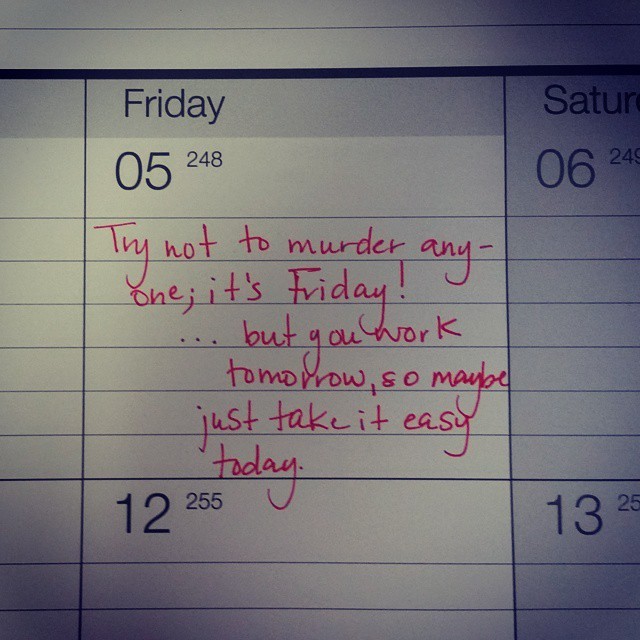 Friday
Satur
05 248
06 249
Try not to murder any-
one; it's Friday!
... but you work
tomorrow, so maybe
just take it easy
today.
12 255
13 25